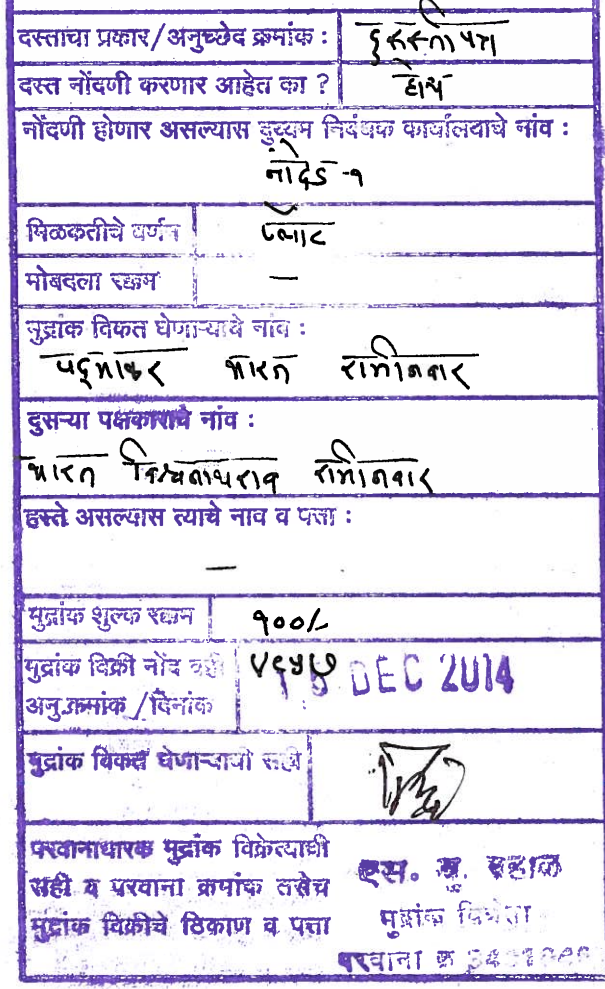 दस्ताचा प्रकार/अनुच्छेद क्रमांक : दुरुस्तीपत्र
दस्त नोंदणी करणार आहेत का ? होय
नोंदणी होणार असल्यास दुय्यम निबंधक कार्यालयाचे नांव :
नांदेड-१
मिळकतीचे वर्णन प्लॉट
मोबदला रक्कम —
मुद्रांक विकत घेणाऱ्याचे नांव :
पद्माकर भारत रामीनवार
दुसऱ्या पक्षकाराचे नांव :
भारत विश्वनाथराव रामीनवार
हस्ते असल्यास त्याचे नाव व पत्ता :
—
मुद्रांक शुल्क रक्कम १००/-
मुद्रांक विक्री नोंद वही
अनुक्रमांक /दिनांक DEC 2014
मुद्रांक विकत घेणाऱ्याची सही
परवानाधारक मुद्रांक विक्रेत्याची एस.
सही व परवाना क्रमांक तसेच मुद्रांक विक्रेता
मुद्रांक विक्रीचे ठिकाण व पत्ता परवाना क्र